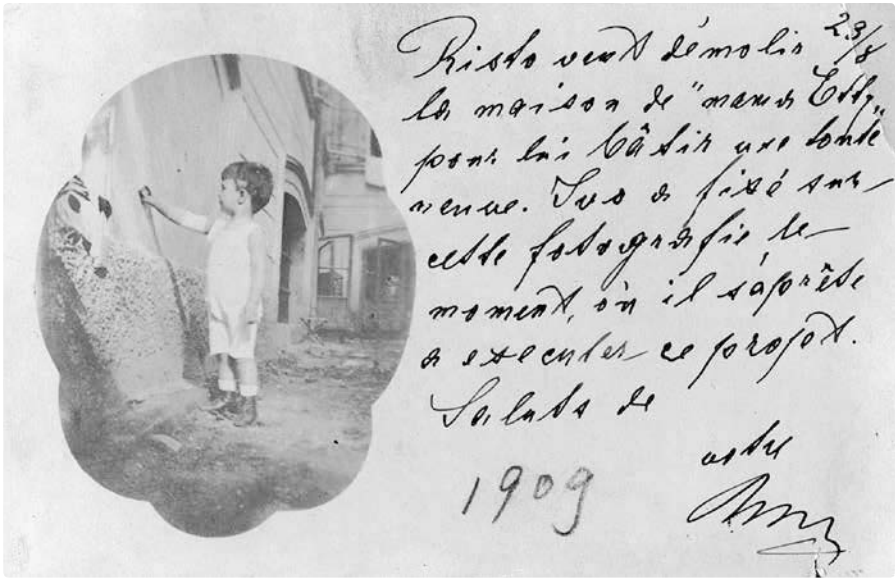 23/8
Risto veut démolir
la maison de "mama Etty"
pour lui bâtir une toute
neuve. Ivo a fixé sur
cette fotografie le
moment, où il s'aprête
a executer ce projet.
Saluts de
votre
1909